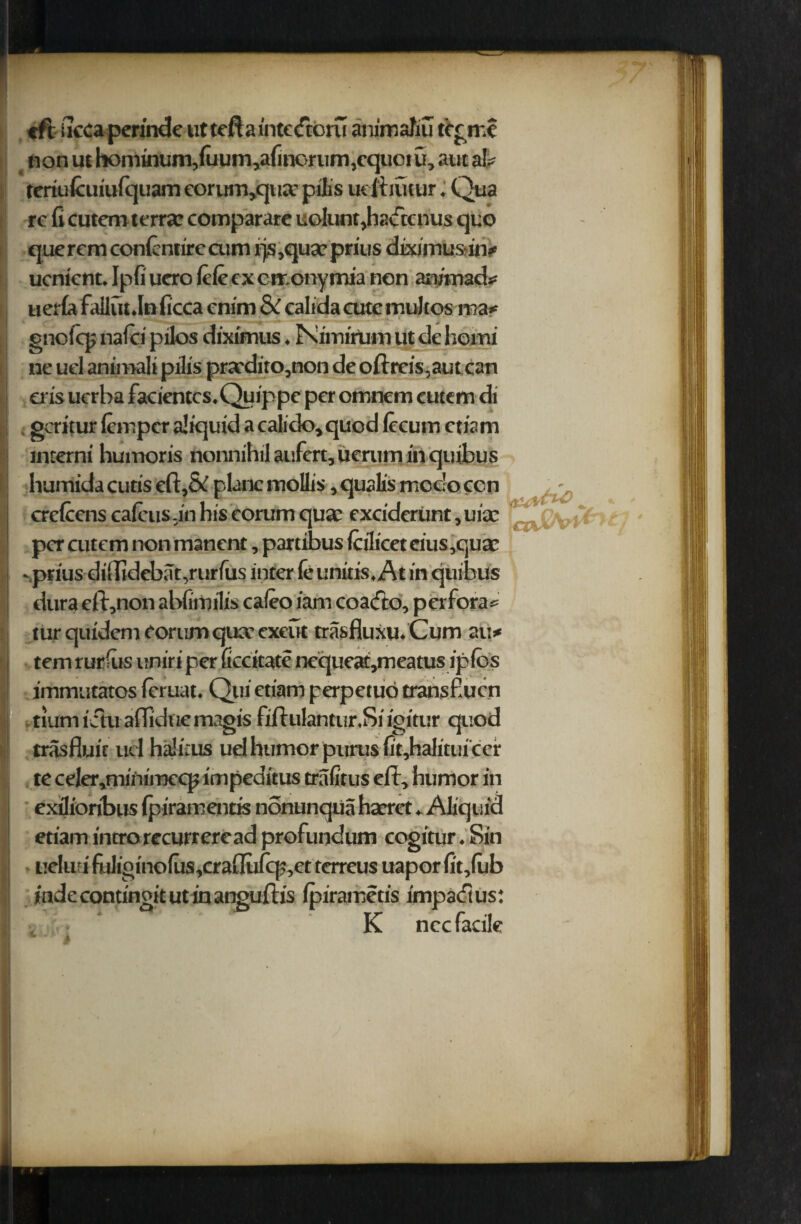 37
eſt ſicca perinde ut teſta intectorũ animaliũ tẽgmẽ
non ut hominum, ſuum, aſinorum, equorũ, aut al⸗
terius cuiuſquam eorum, quæ pilis ueſtiũtur. Qua
re ſi cutem terræ comparare uolunt, hactenus quo
que rem conſentire cum ijs, quæ prius diximus in⸗
uenient. Ipſi uero ſeſe ex omonymia non animad⸗
uerſa fallũt. In ſicca enim & calida cute multos ma⸗
gnoſq; naſci pilos diximus. Nimirum ut de homi
ne uel animali pilis prædito, non de oſtreis, aut can
cris uerba facientes. Quippe per omnem cutem di
geritur ſemper aliquid a calido, quod ſecum etiam
interni humoris nonnihil aufert, uerum in quibus
humida cutis eſt, & plane mollis, qualis modo con
creſcens caſeus, in his eorum quæ exciderunt, uiæ
per cutem non manent, partibus ſcilicet eius, quæ
prius diſſidebãt, rurſus inter ſe unitis. At in quibus
dura eſt, non abſimilis caſeo iam coacto, perfora⸗
tur quidem eorum quæ exeũt trãsfluxu. Cum au⸗
tem rurſus uniri per ſiccitatẽ nequeat, meatus ipſos
immutatos ſeruat. Qui etiam perpetuò transfluen
tium ictu aſſidue magis fiſtulantur. Si igitur quod
trãsfluit uel halitus uel humor purus ſit, halitui cer
te celer, minimeq; impeditus trãſitus eſt, humor in
exilioribus ſpiramentis nõnunquã hæret. Aliquid
etiam intro recurrere ad profundum cogitur. Sin
ueluti fuliginoſus, craſſuſq;, et terreus uapor ſit, ſub
inde contingit ut in anguſtis ſpiramẽtis impactus:
K nec facile